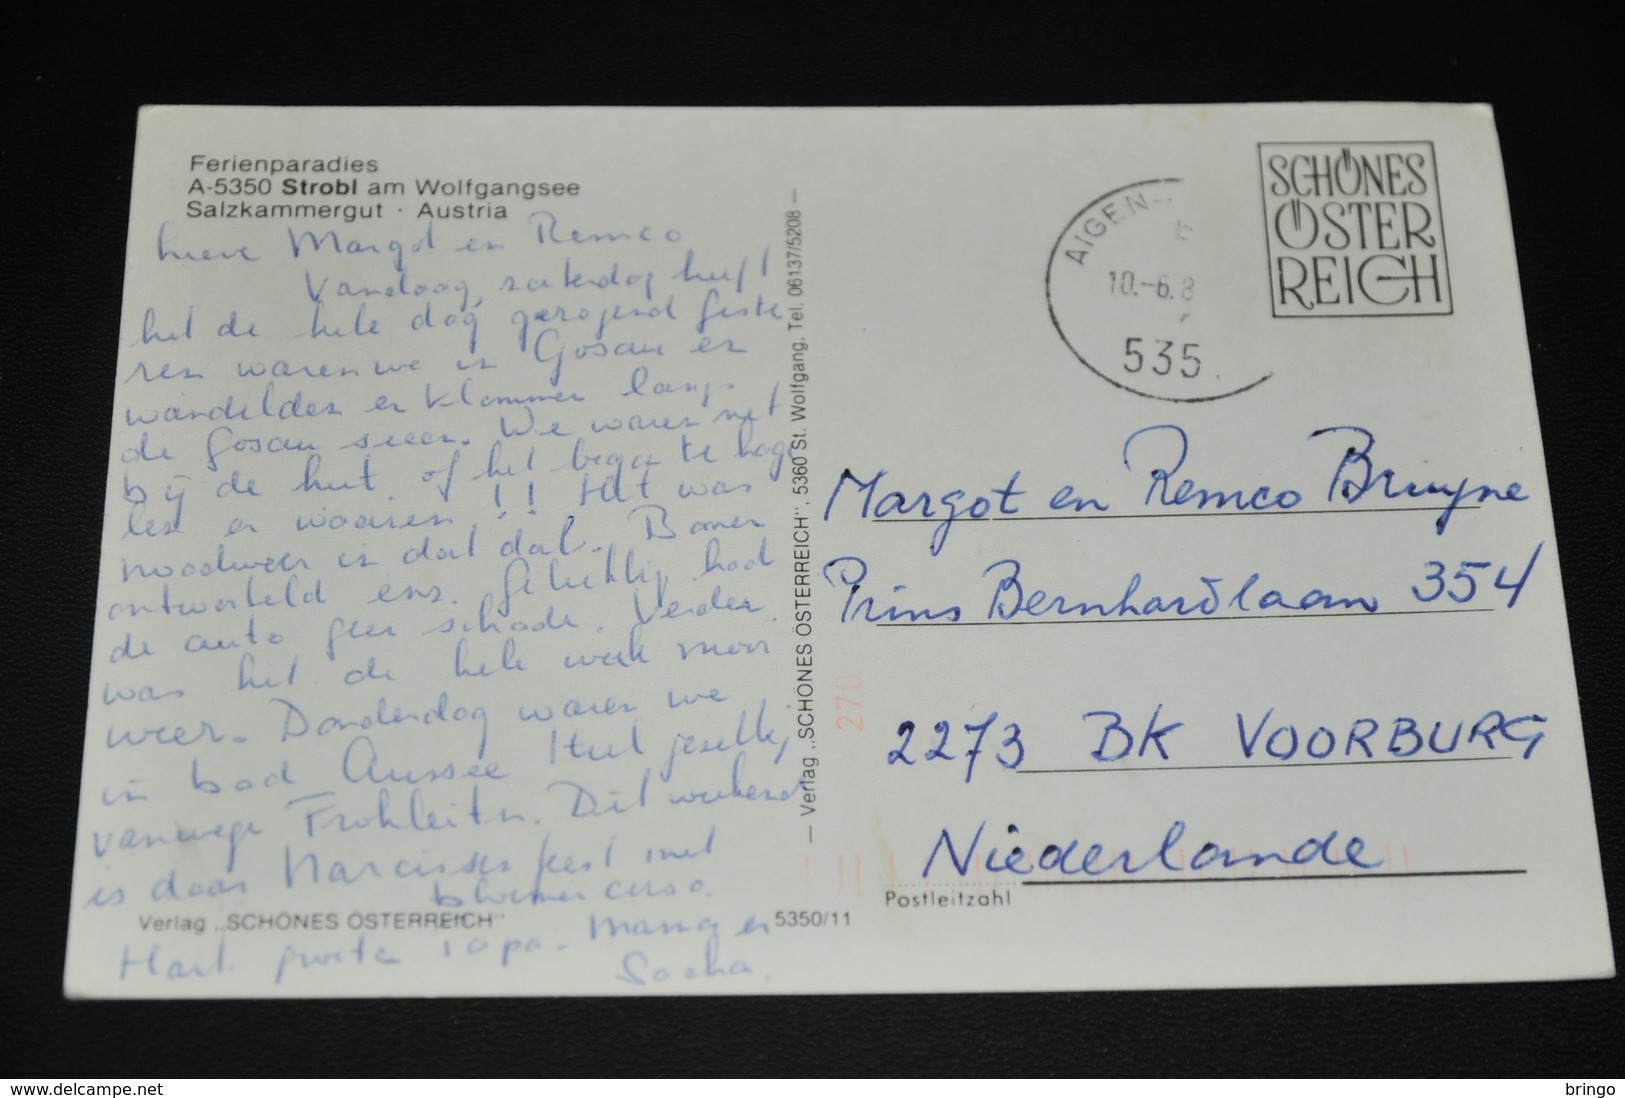 Ferienparadies
A-5350 Strobl am Wolfgangsee
Salzkammergut · Austria
Lieve Margot en Remco
Vandaag, zaterdag heeft
het de hele dag geregend giste
ren waren we in Gosau en
wandelden en klommen langs
de Gosau seeen. We waren net
bij de hut, of het begon te hage
len en waaien!!! Het was
noodweer in dat dal. Bomen
ontworteld enz. Gelukkig had
de auto geen schade. Verder
was het de hele week mooi
weer. Donderdag waren we
in bad Aussee Heel gezellig
vanwege Frohleitn. Dit weekend
is daar Narcissenfeest met
bloemencorso.
Hart. groeten Papa. Mama en
Sacha.
Verlag „SCHÖNES ÖSTERREICH"
5350/11
— Verlag „SCHÖNES ÖSTERREICH", 5360 St. Wolfgang, Tel. 06137/5208 —
AIGEN-
10.-6.8
535
SCHÖNES
ÖSTER
REICH
Margot en Remco Bruyne
Prins Bernhardlaan 354
2273 BK VOORBURG
Niederlande
Postleitzahl
270
© delcampe.net
bringo